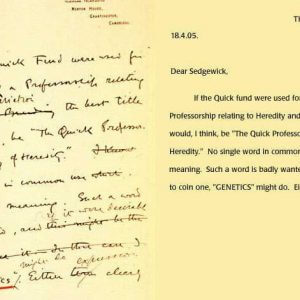 MERTON HOUSE,
GRANTCHESTER,
CAMBRIDGE.
Quick Fund were used for
a Professorship relating
the best title
be "The Quick Professor
of Heredity".
in common use
meaning. Such a word
if it were desirable
and
might do
Either
clearly
Th
18.4.05.
Dear Sedgewick,
If the Quick fund were used for
Professorship relating to Heredity and
would, I think, be "The Quick Profess
Heredity." No single word in common
meaning. Such a word is badly wante
to coin one, "GENETICS" might do. Ei